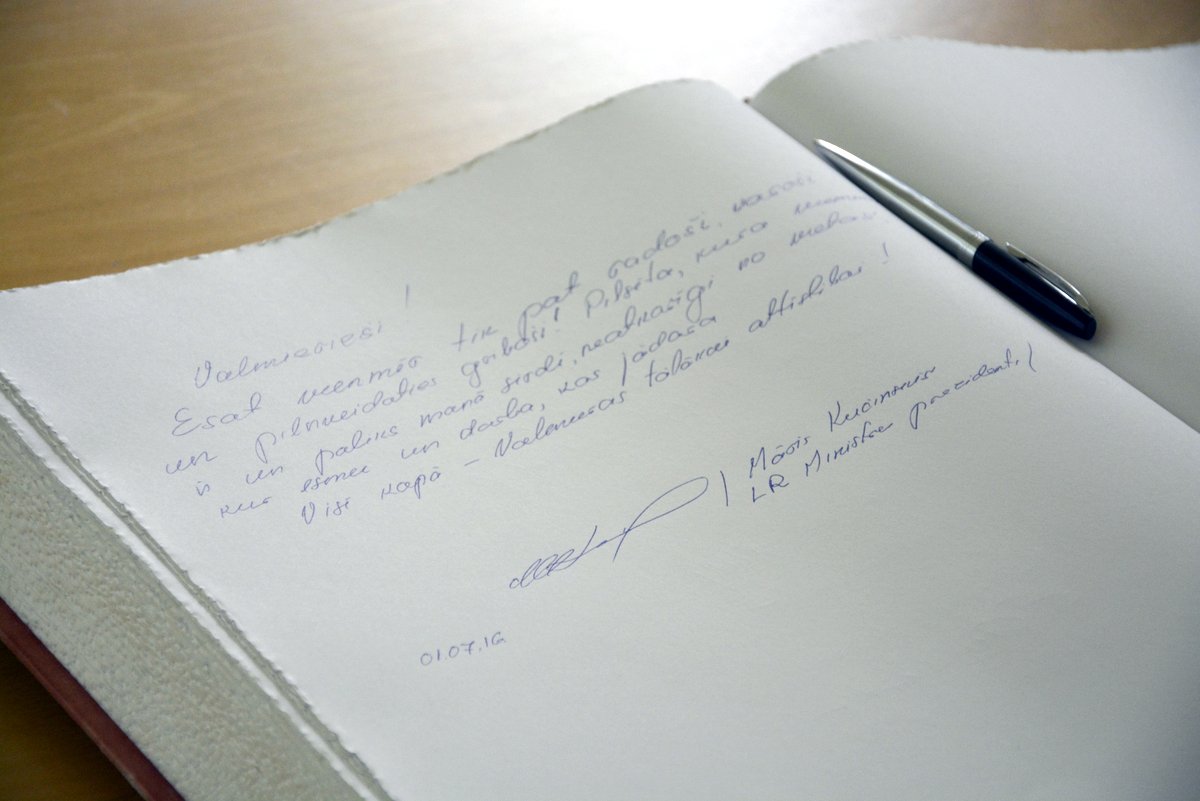 Valmierieši !
Esat vienmēr tik pat radoši, raroši
un pilnveidoties griboši! Pilsēta, kura vienm
ir un paliks manā sirdī, neatkarīgi no
kur esmu un darba, kas jādara
Visi kopā - Valmieras tālākai attīstībai !
/ Māris Kučinskis
LR Ministru prezidents /
01.07.16